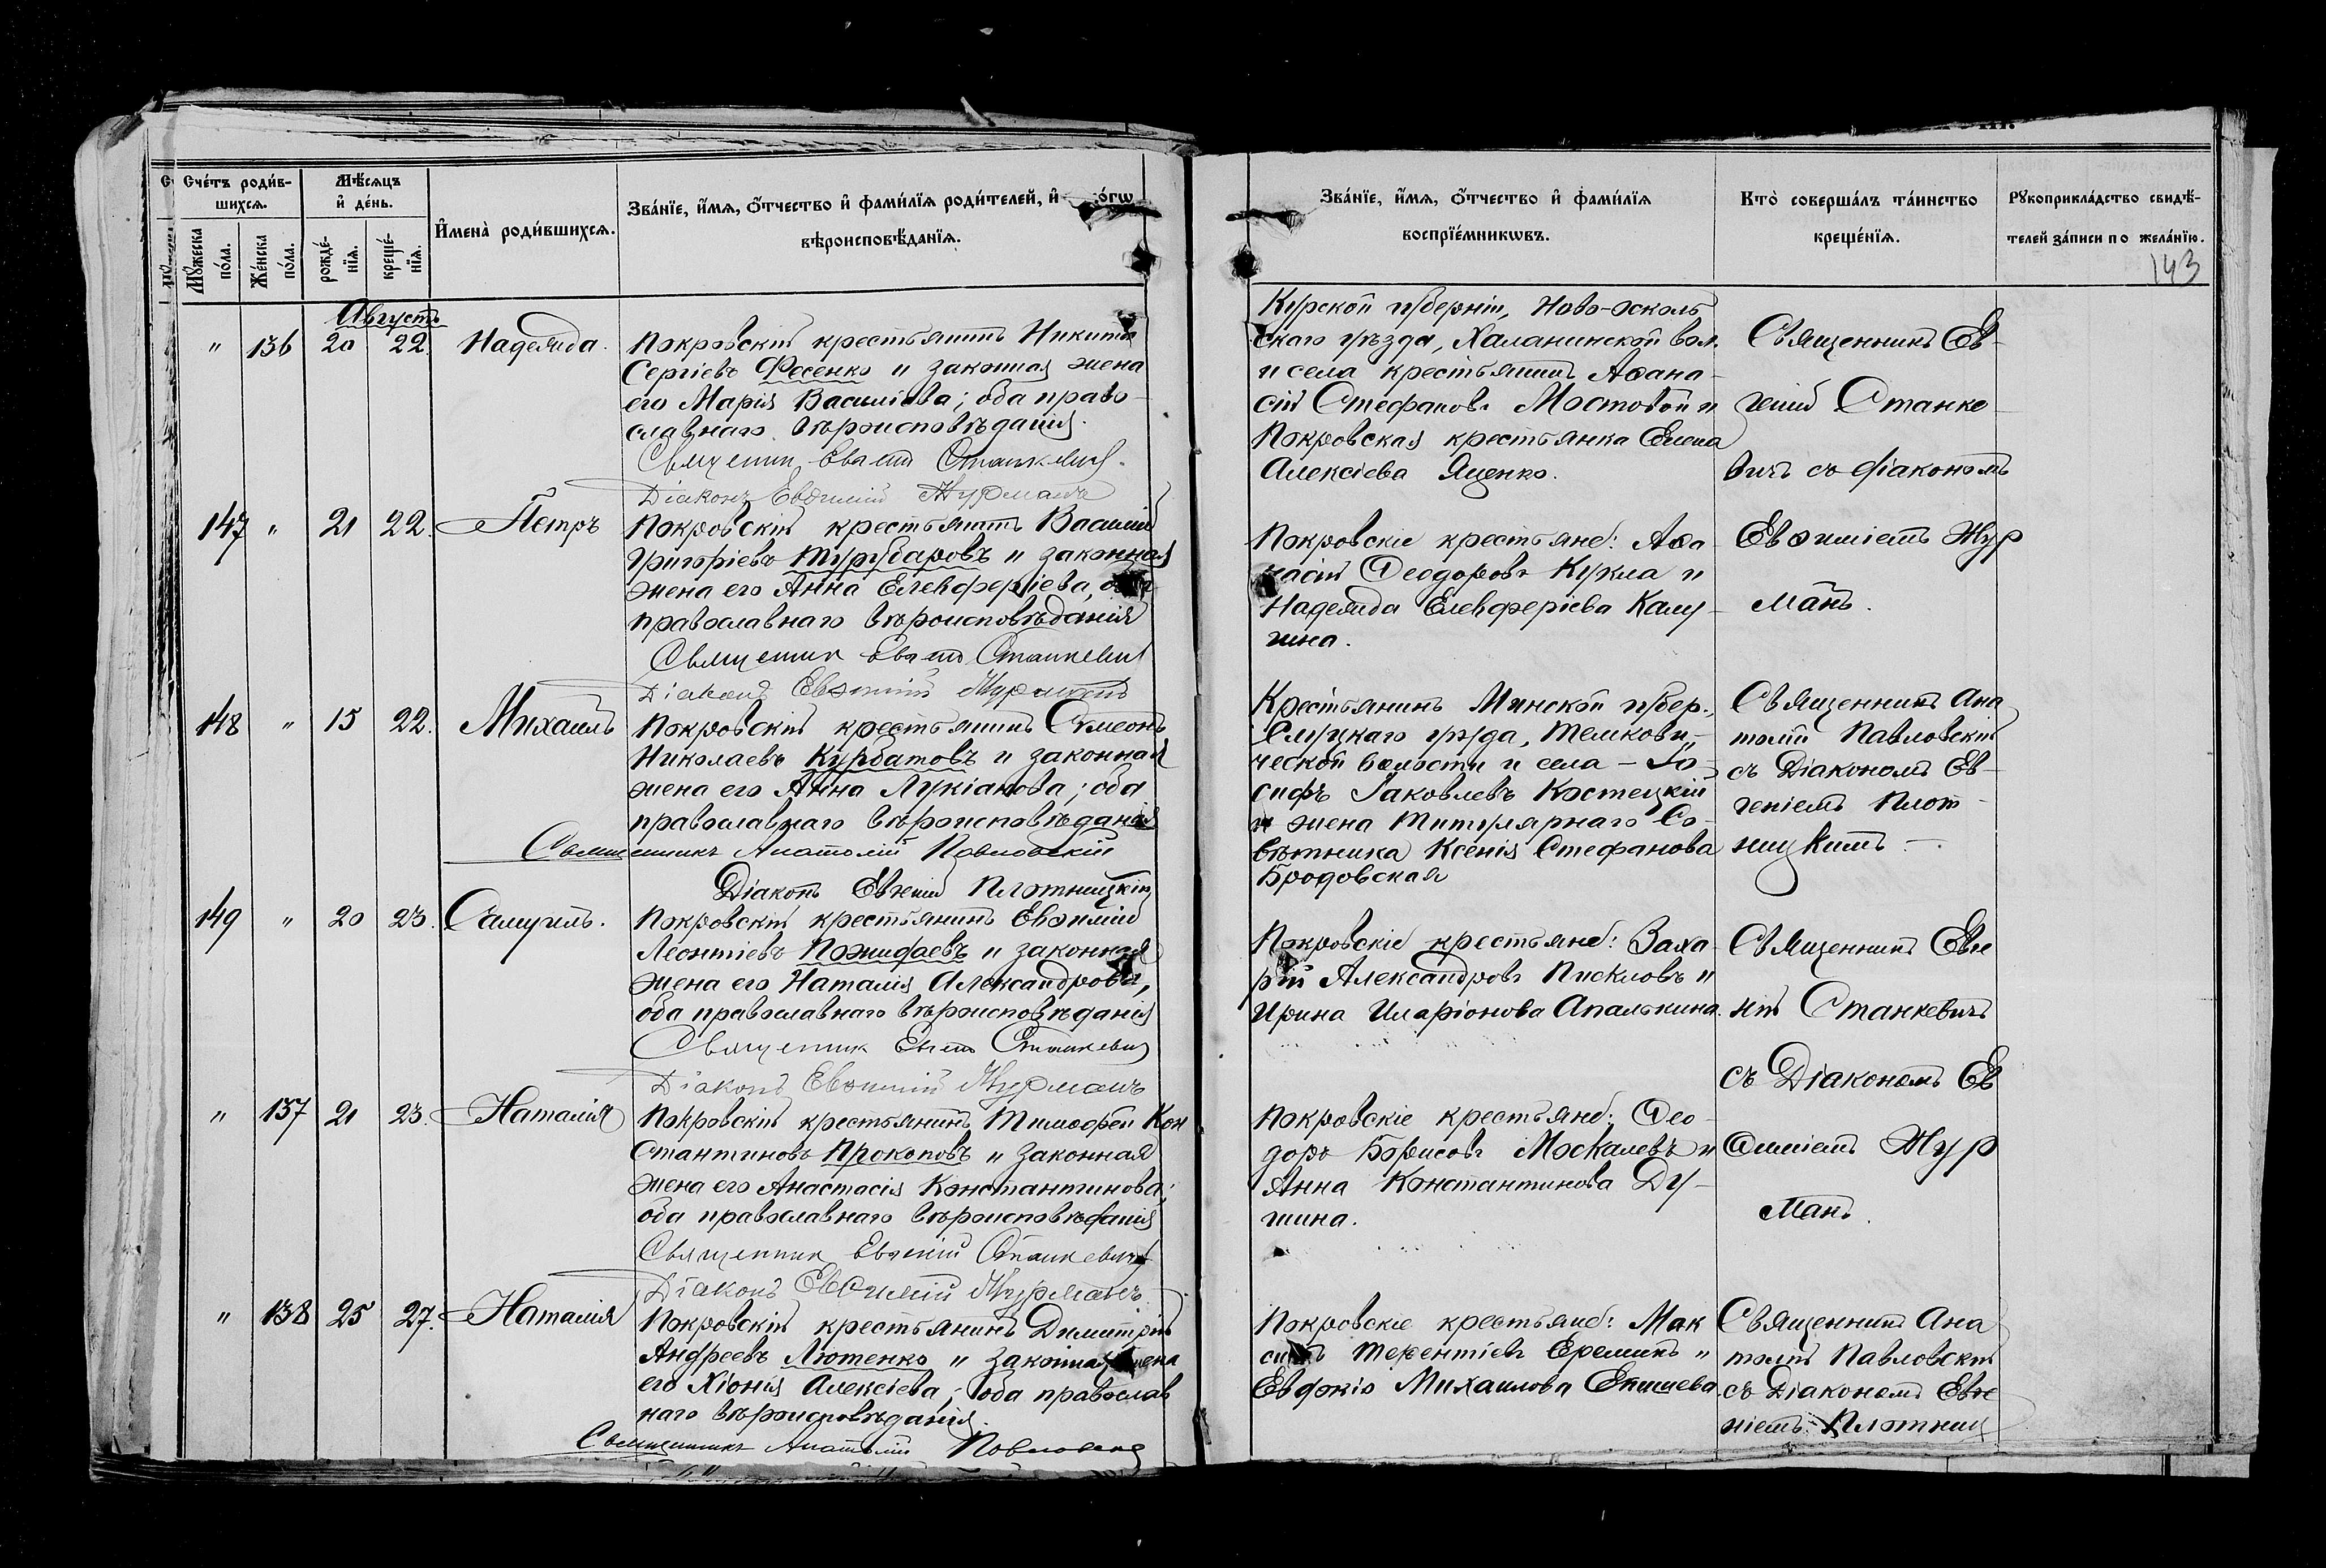 143
Счётъ роди́в-
шихся.
Мѣ́сяцъ
и҆ де́нь.
И҆мена̀ роди́вшихся.
Зва́нїе, и҆́мя, ѻ҆́тчество и҆ фами́лїя роди́телей, и҆
вѣроисповѣ́данїя.
Мꙋ́жеска
по́ла.
Же́нска
по́ла.
рожде́-
нїя.
креще́-
нїя.
Августъ
" 136 20 22. Надежда.
Покровскій крестьянинъ Никита
Сергіевъ Фесенко и законная жена
его Марія Василіева; оба право-
славнаго вѣроисповѣданія.
Священникъ Евгеній Станкевичъ.
Діаконъ Евѳимій Журманъ
147 " 21 22. Петръ
Покровскій крестьянинъ Василій
Григоріевъ Турубаровъ и законная
жена его Анна Елевферіева, оба
православнаго вѣроисповѣданія
Священник Евгеній Станкевич
Діаконъ Евѳимій Журманъ
148 " 15 22. Михаилъ
Покровскій крестьянинъ Симеонъ
Николаевъ Курбатовъ и законная
жена его Анна Лукіанова; оба
православнаго вѣроисповѣданія
Священникъ Анатолій Павловскій
Діаконъ Евгеній Плотницкій
149 " 20 23. Самуилъ.
Покровскій крестьянинъ Евѳимій
Леонтіевъ Пожидаевъ и законная
жена его Наталія Александрова,
оба православнаго вѣроисповѣданія
Священник Евгеній Станкевич
Діаконъ Евѳимій Журманъ
" 137 21 23. Наталія
Покровскій крестьянинъ Тимоѳей Кон
стантиновъ Прокоповъ и законная
жена его Анастасія Константинова;
оба православнаго вѣроисповѣданія
Священник Евгеній Станкевичъ
Діаконъ Евѳимій Журманъ
" 138 25 27. Наталія
Покровскій крестьянинъ Димитрій
Андреевъ Лютенко и законная жена
его Хіонія Алексіева; оба православ
наго вѣроисповѣданія.
Священникъ Анатолій Павловскій
Зва́нїе, и҆́мя, ѻ҆́тчество и҆ фами́лїя
воспрїе́мникѡвъ.
Кто̀ соверша́лъ та́инство
креще́нїя.
Рꙋкоприкла́дство свидѣ́-
телей за́писи по жела́нїю.
Курской губерніи, Ново-Осколь
скаго уѣзда, Халанинской вол.
и села крестьянинъ Аѳана-
сій Стефановъ Мостовой и
Покровская крестьянка Елена
Алексіева Яценко.
Священникъ Ев-
геній Станке-
вичъ съ діакономъ
Покровскіе крестьяне: Аѳа-
насій Ѳеодоровъ Кукла и
Надежда Елевферіева Калу-
гина.
Евѳиміемъ Жур
манъ.
Крестьянинъ Минской губер.,
Слуцкаго уѣзда, Телкови-
ческой волости и села – Іо-
сифъ Іаковлевъ Костецкій
и жена Титулярнаго Со-
вѣтника Ксенія Стефанова
Бродовская
Священникъ Ана
толій Павловскій
съ Діакономъ Ев-
геніемъ Плот-
ницкимъ –.
Покровскіе крестьяне: Заха-
рій Александровъ Пискловъ и
Ирина Иларіонова Апалькина.
Священникъ Евге
ній Станкевичъ
съ Діакономъ Ев
Покровскіе крестьяне: Ѳео-
доръ Борисовъ Москалевъ и
Анна Константинова Ду-
шина.
ѳиміемъ Жур
манъ.
Покровскіе крестьяне: Мак
симъ Терентіевъ Ереминъ и
Евдокія Михаилова Епишева.
Священникъ Ана
толій Павловскій
съ Діакономъ Евге
ніемъ Плотниц